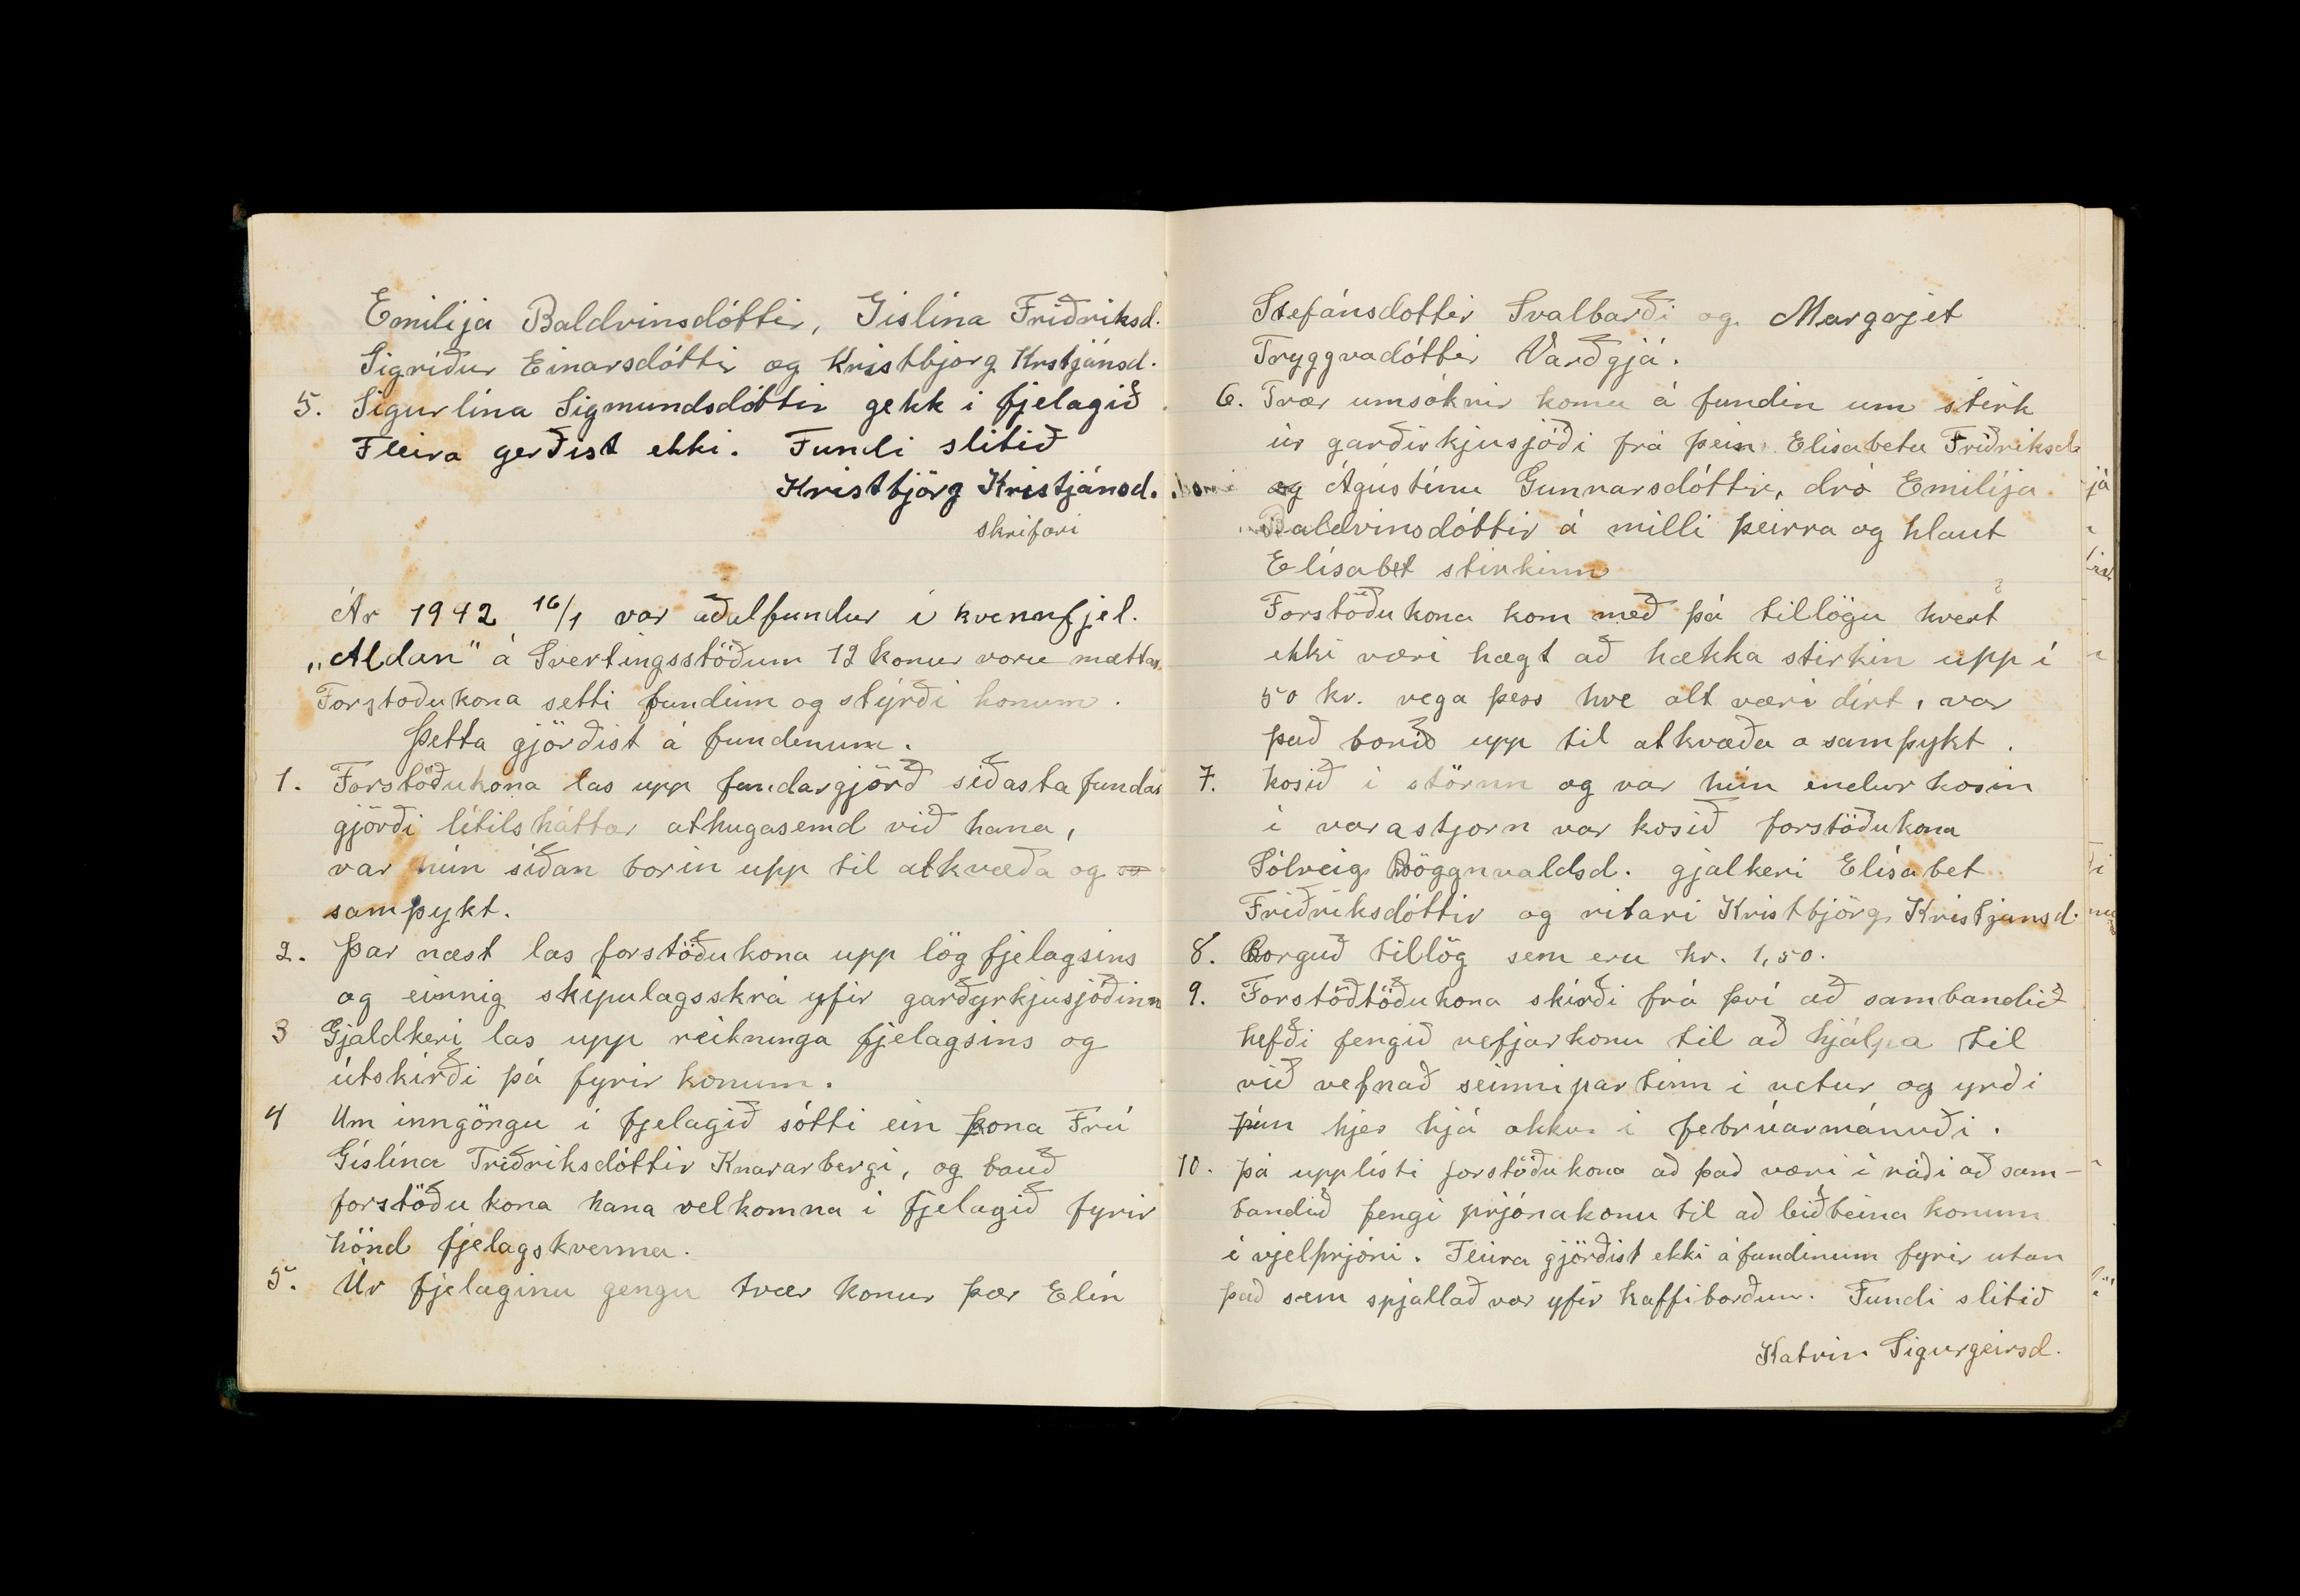 Emilija Baldvinsdóttir, Gislína Friðriksd.
Sigríður Einarsdóttir og Kristbjörg Krstjánsd.
5. Sigurlína Sigmundsdóttir gekk i fjelagið
Fleira gerðist ekki. Fundi slitið
Kristbjörg Kristjánsd.
skrifari
Ár 1942 16/1 var aðalfundur í kvennfjel.
„Aldan" á Svertingsstöðum 12 konur voru mættar.
Forstoðukona setti fundinn og stýrði honum.
Þetta gjörðist á fundenum.
1. Forstöðukona las upp fundargjörð síðasta fundar
gjörði lítilsháttar athugasemd við hana,
var hún síðan borin upp til atkvæða og
samþykt.
2. Þar næst las forstöðukona upp lög fjelagsins
og einnig skipulagsskrá yfir garðyrkjusjóðinn
3 Gjaldkeri las upp reikninga fjelagsins og
útskírði þá fyrir konum.
4 Um inngöngu í fjelagið sótti ein kona Frú
Gíslína Friðriksdóttir Knararbergi, og bauð
forstöðukona hana velkomna i fjelagið fyrir
hönd fjelagskvenna.
5. Úr fjelaginu gengu tvær konur þær Elín
Stefánsdottir Svalbarði og Margrjet
Tryggvadóttir Varðgjá.
6. Tvær umsóknir komu á fundin um stirk
úr garðirkjusjóði frá þeim Elisabetu Friðriksd.
og Ágústínu Gunnarsdóttir, dró Emilíja
Baldvinsdóttir á milli þeirra og hlaut
Elísabet stirkinn
Forstöðukona kom með þá tillögu hvert
ekki væri hægt að hækka stirkin upp í
50 kr. vega þess hve alt væri dírt, var
það borið upp til atkvæða o samþykt.
7. kosið í störnn og var hún endurkosin
í varastjorn var kosið forstöðukona
Sólveig Röggnvaldsd. gjalkeri Elísabet
Friðriksdóttir og ritari Kristbjörg Kristjansd.
8. Borguð tillög sem eru kr. 1,50.
9. Forstöðtöðukona skírði frá því að sambandið
hefði fengið vefjarkonu til að hjálpa til
við vefnað seinnipartinn i vetur og yrði
hún hjer hjá okkur i febrúarmánuði.
10. þá upplísti forstöðukona að það væri í ráði að sam-
bandið fengi prjónakonu til að leiðbeina konum
í vjelprjóni. Fleira gjörðist ekki á fundinum fyrir utan
það sem spjallað var yfir kaffiborðum. Fundi slitið
Katrin Sigurgeirsd.